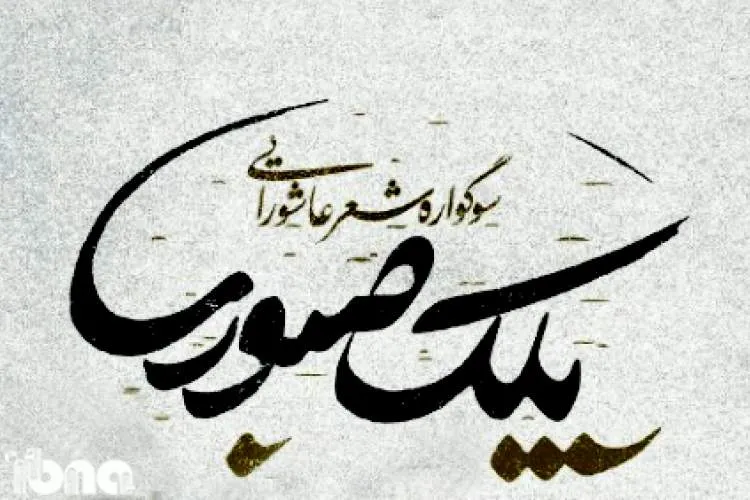 سوگواره شعر عاشورایی
پلک صبوری
ibna